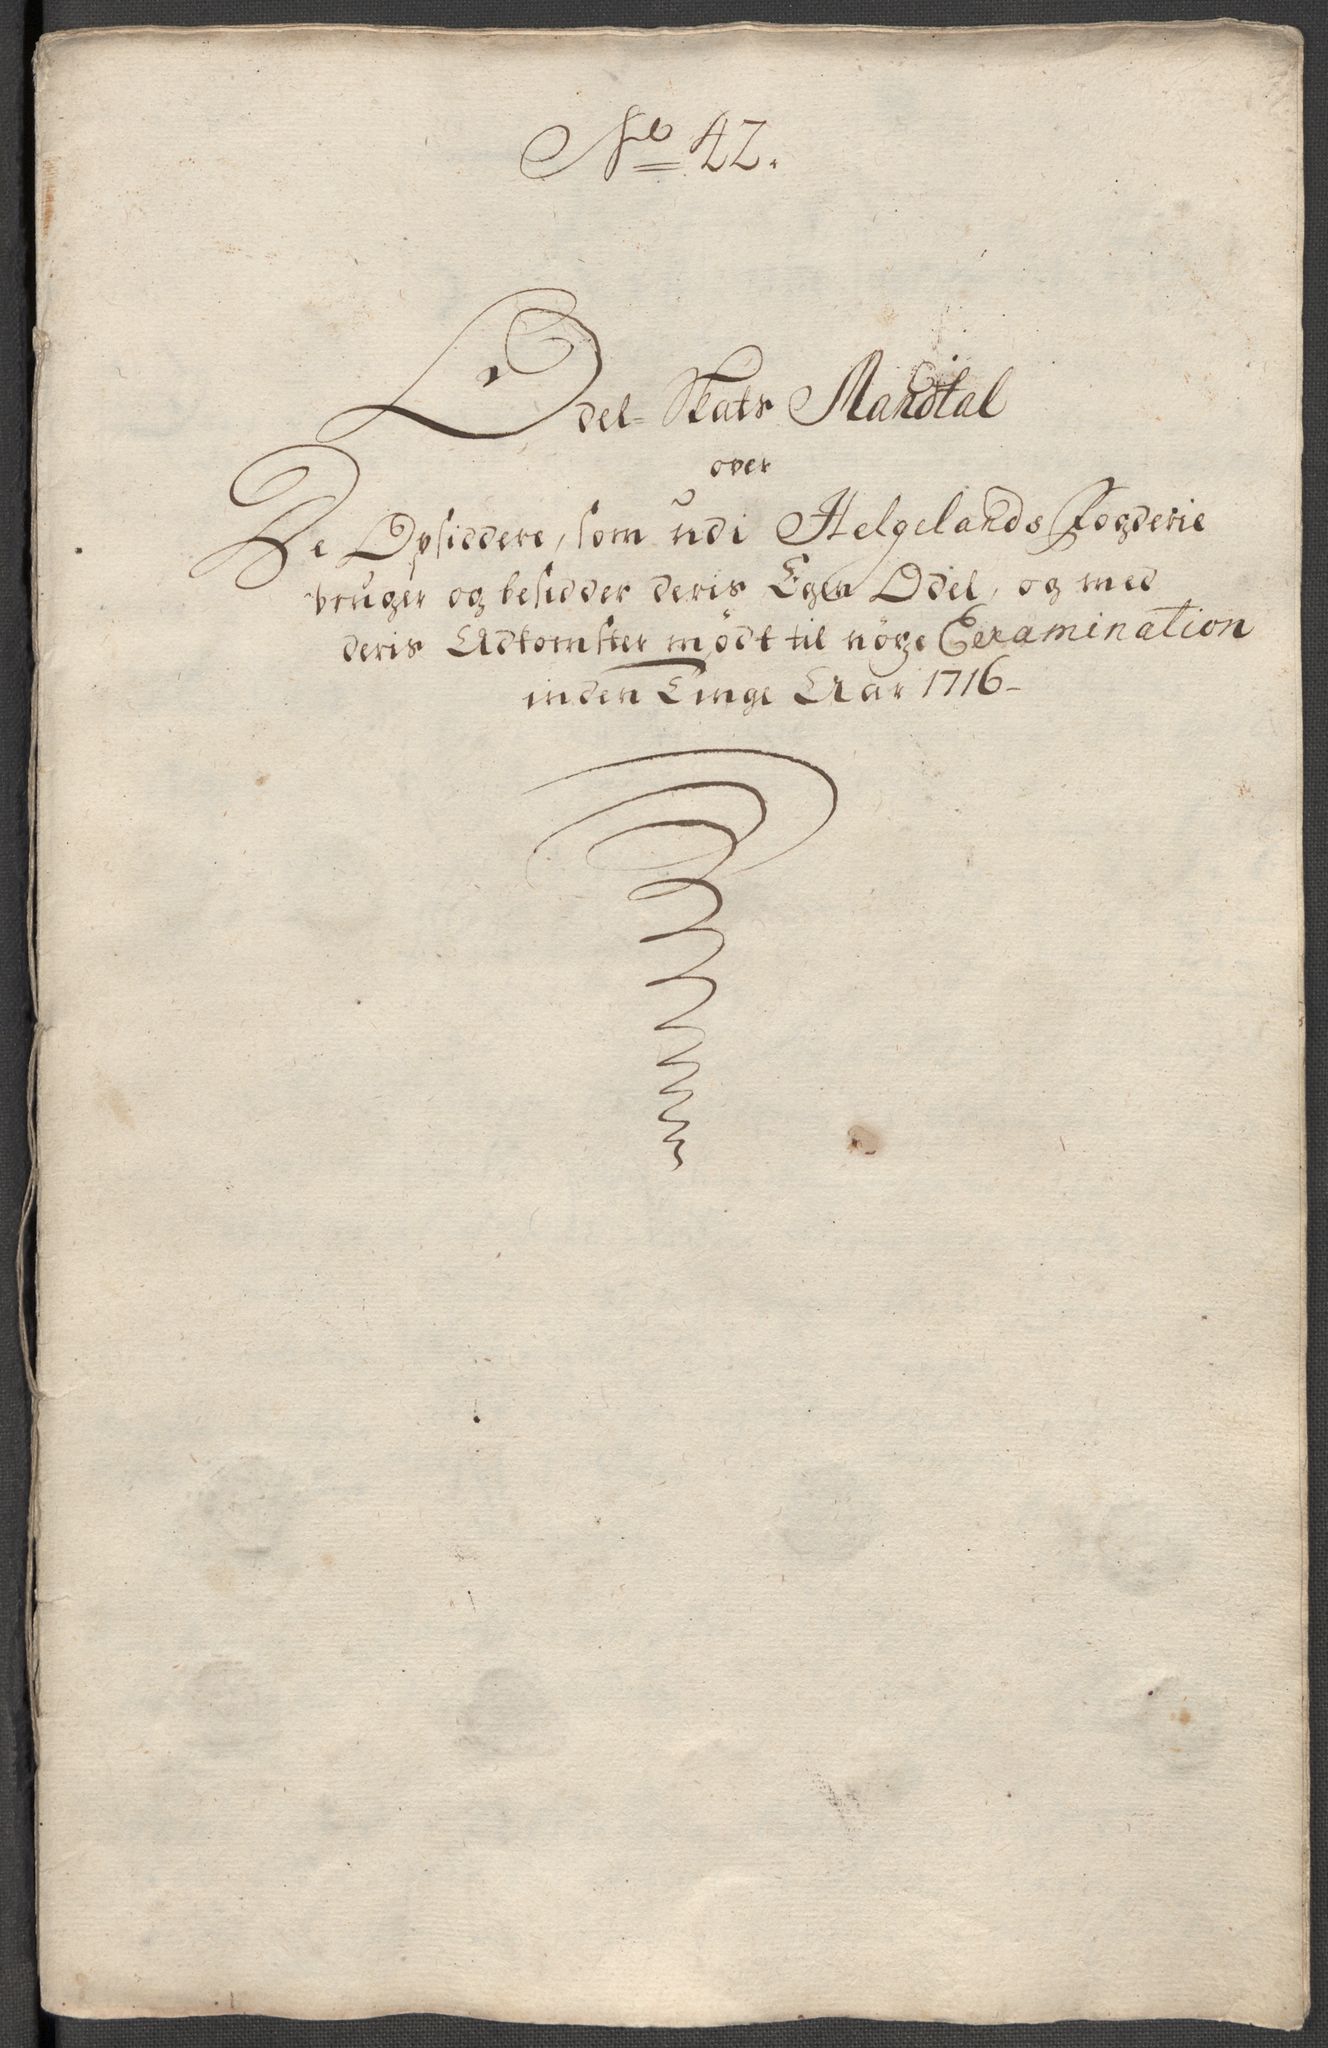 No 42.
Odel-Skats Mandtal
over
De Opsiddere, som udi Helgelands Fogderie
bruger og besidder deris Egen Odel, og med
deris Adkomster mødt til nøye Examination
inden Tinge Aar 1716-